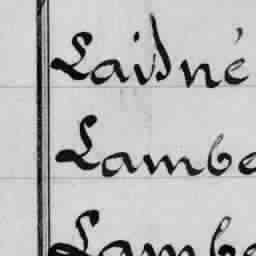 Laisné
Lambe
Lambe